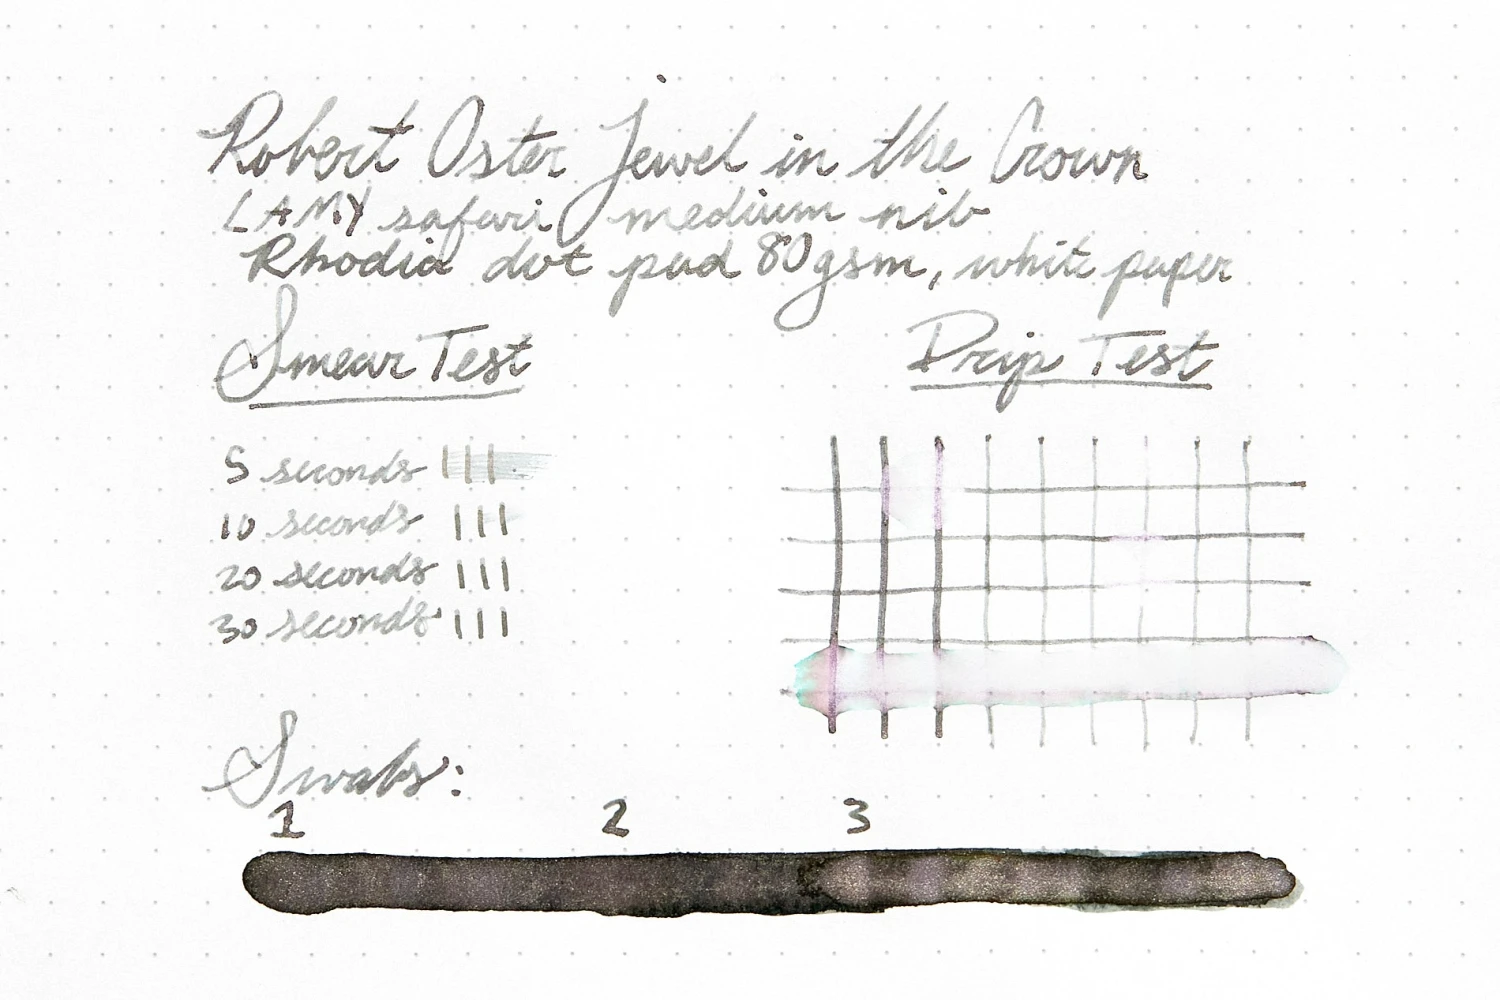 Robert Oster Jewel in the Crown
LAMY safari medium nib
Rhodia dot pad 80gsm, white paper
Smear Test
Drip Test
5 seconds
10 seconds
20 seconds
30 seconds
Swabs:
1 2 3